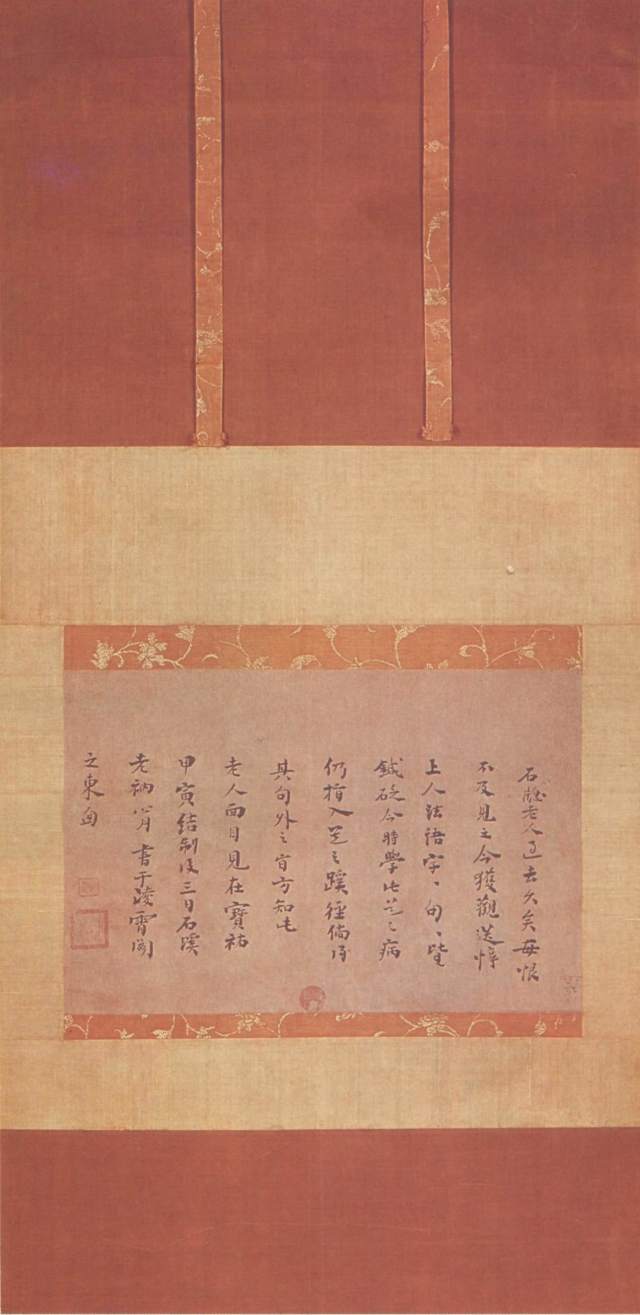 石谿老人過去久矣每恨
不及見之今獲觀送惇
上人法語字〻句〻皆
鍼砭今時學此道之病
仍指入道之蹊徑倘得
其句外之旨方知此
老人面目見在寶祐
甲寅結制後三日石溪
老衲心月書于凌霄閣
之東